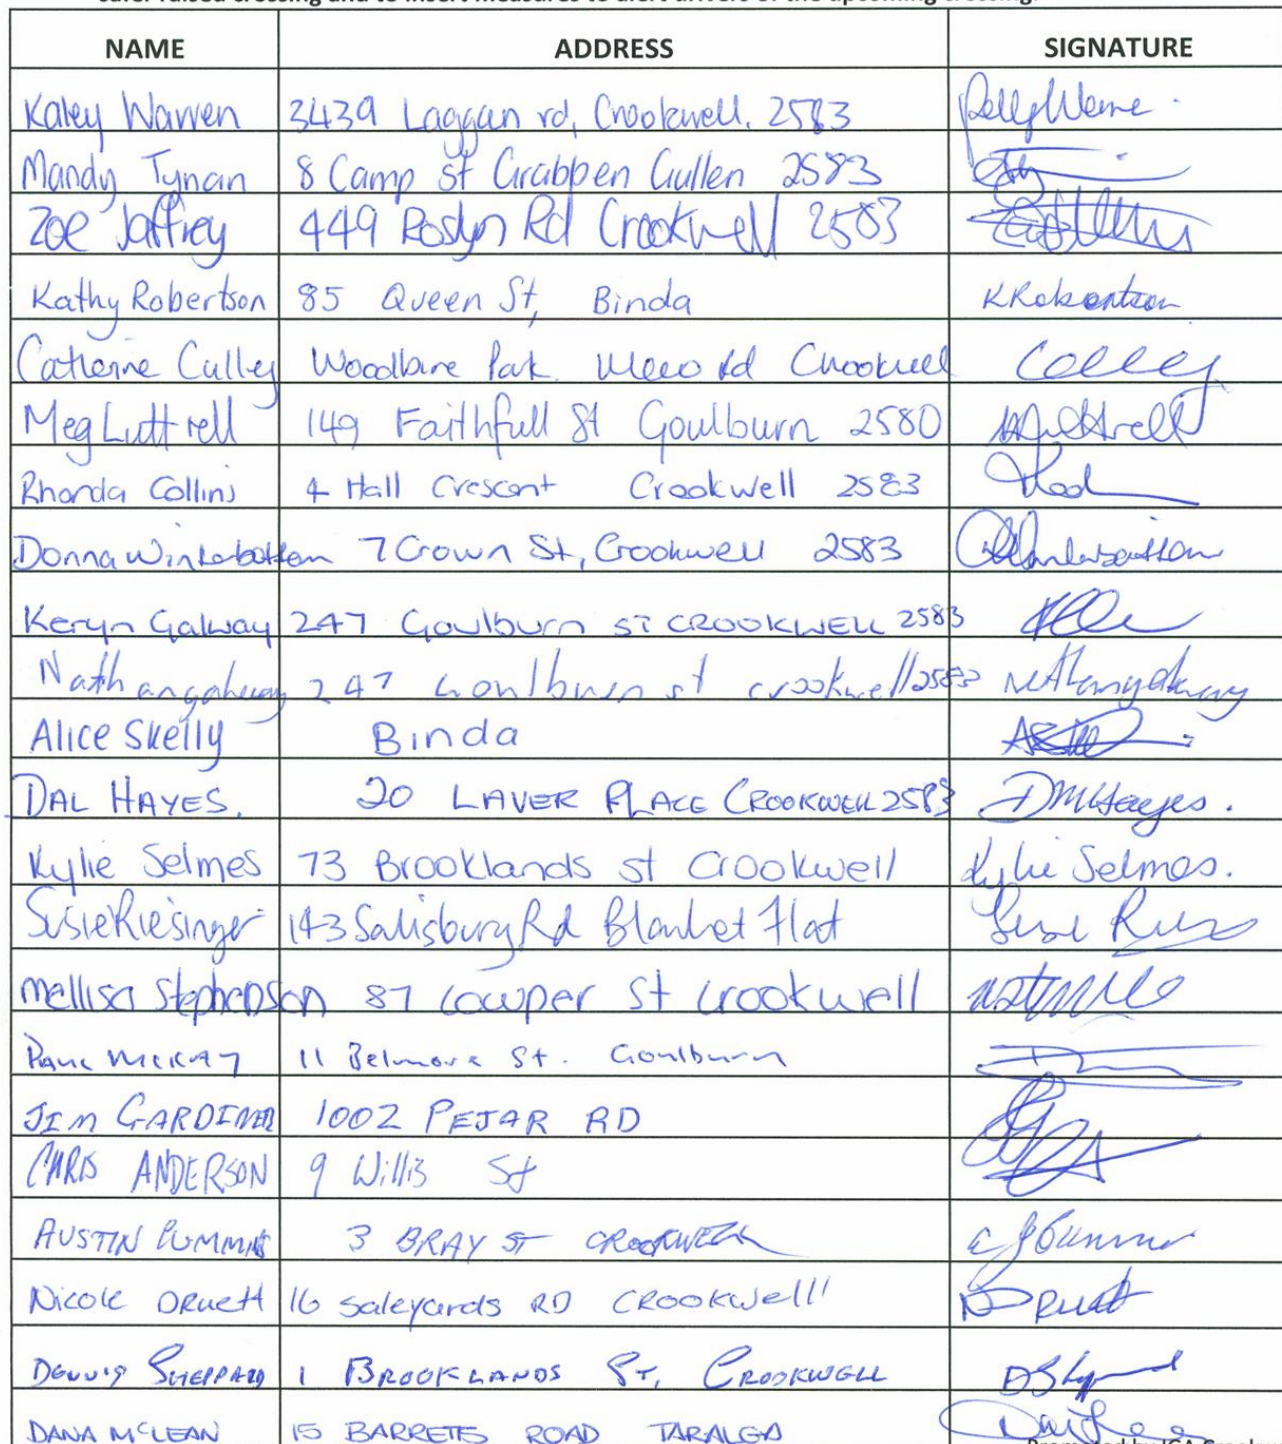 safer raised crossing and to insert measures to alert drivers of the upcoming crossing.
NAME ADDRESS SIGNATURE
Kaley Warren 3439 Laggan rd, Crookwell, 2583
Mandy Tynan 8 Camp st Grabben Gullen 2583
Zoe Jaffrey 449 Roslyn Rd Crookwell 2583
Kathy Robertson 85 Queen St, Binda KRobertson
Catherine Culley Woodbine Park Rd Crookwell Culley
Meg Luttrell 149 Faithfull St Goulburn 2580 MLuttrell
Rhonda Collins 4 Hall Crescent Crookwell 2583
Donna Winterbottom 7 Crown St, Crookwell 2583
Keryn Galway 247 Goulburn ST CROOKWELL 2583
Nathangalway 247 Goulburn st crookwell 2583 nathangalway
Alice Skelly Binda
DAL HAYES. 20 LAVER PLACE CROOKWELL 2583 DMHayes.
Kylie Selmes 73 Brooklands st Crookwell Kylie Selmes.
Susie Riesinger 143 Salisbury Rd Blanket Flat
Mellisa Stephenson 87 Cowper St Crookwell
Paul McKay 11 Belmore St. Goulburn
JIM GARDINER 1002 PEJAR RD
CHRIS ANDERSON 9 Willis St
AUSTIN CUMMINS 3 BRAY ST CROOKWELL
Nicole Druett 16 Saleyards RD CROOKWell
Dennis SHEPPARD 1 BROOKLANDS ST, CROOKWELL
DANA McLEAN 15 BARRETS ROAD TARALGA